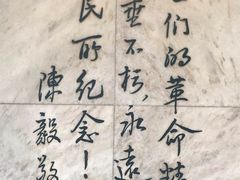 们的革命精
垂不朽，永远
民所纪念！
陈毅敬